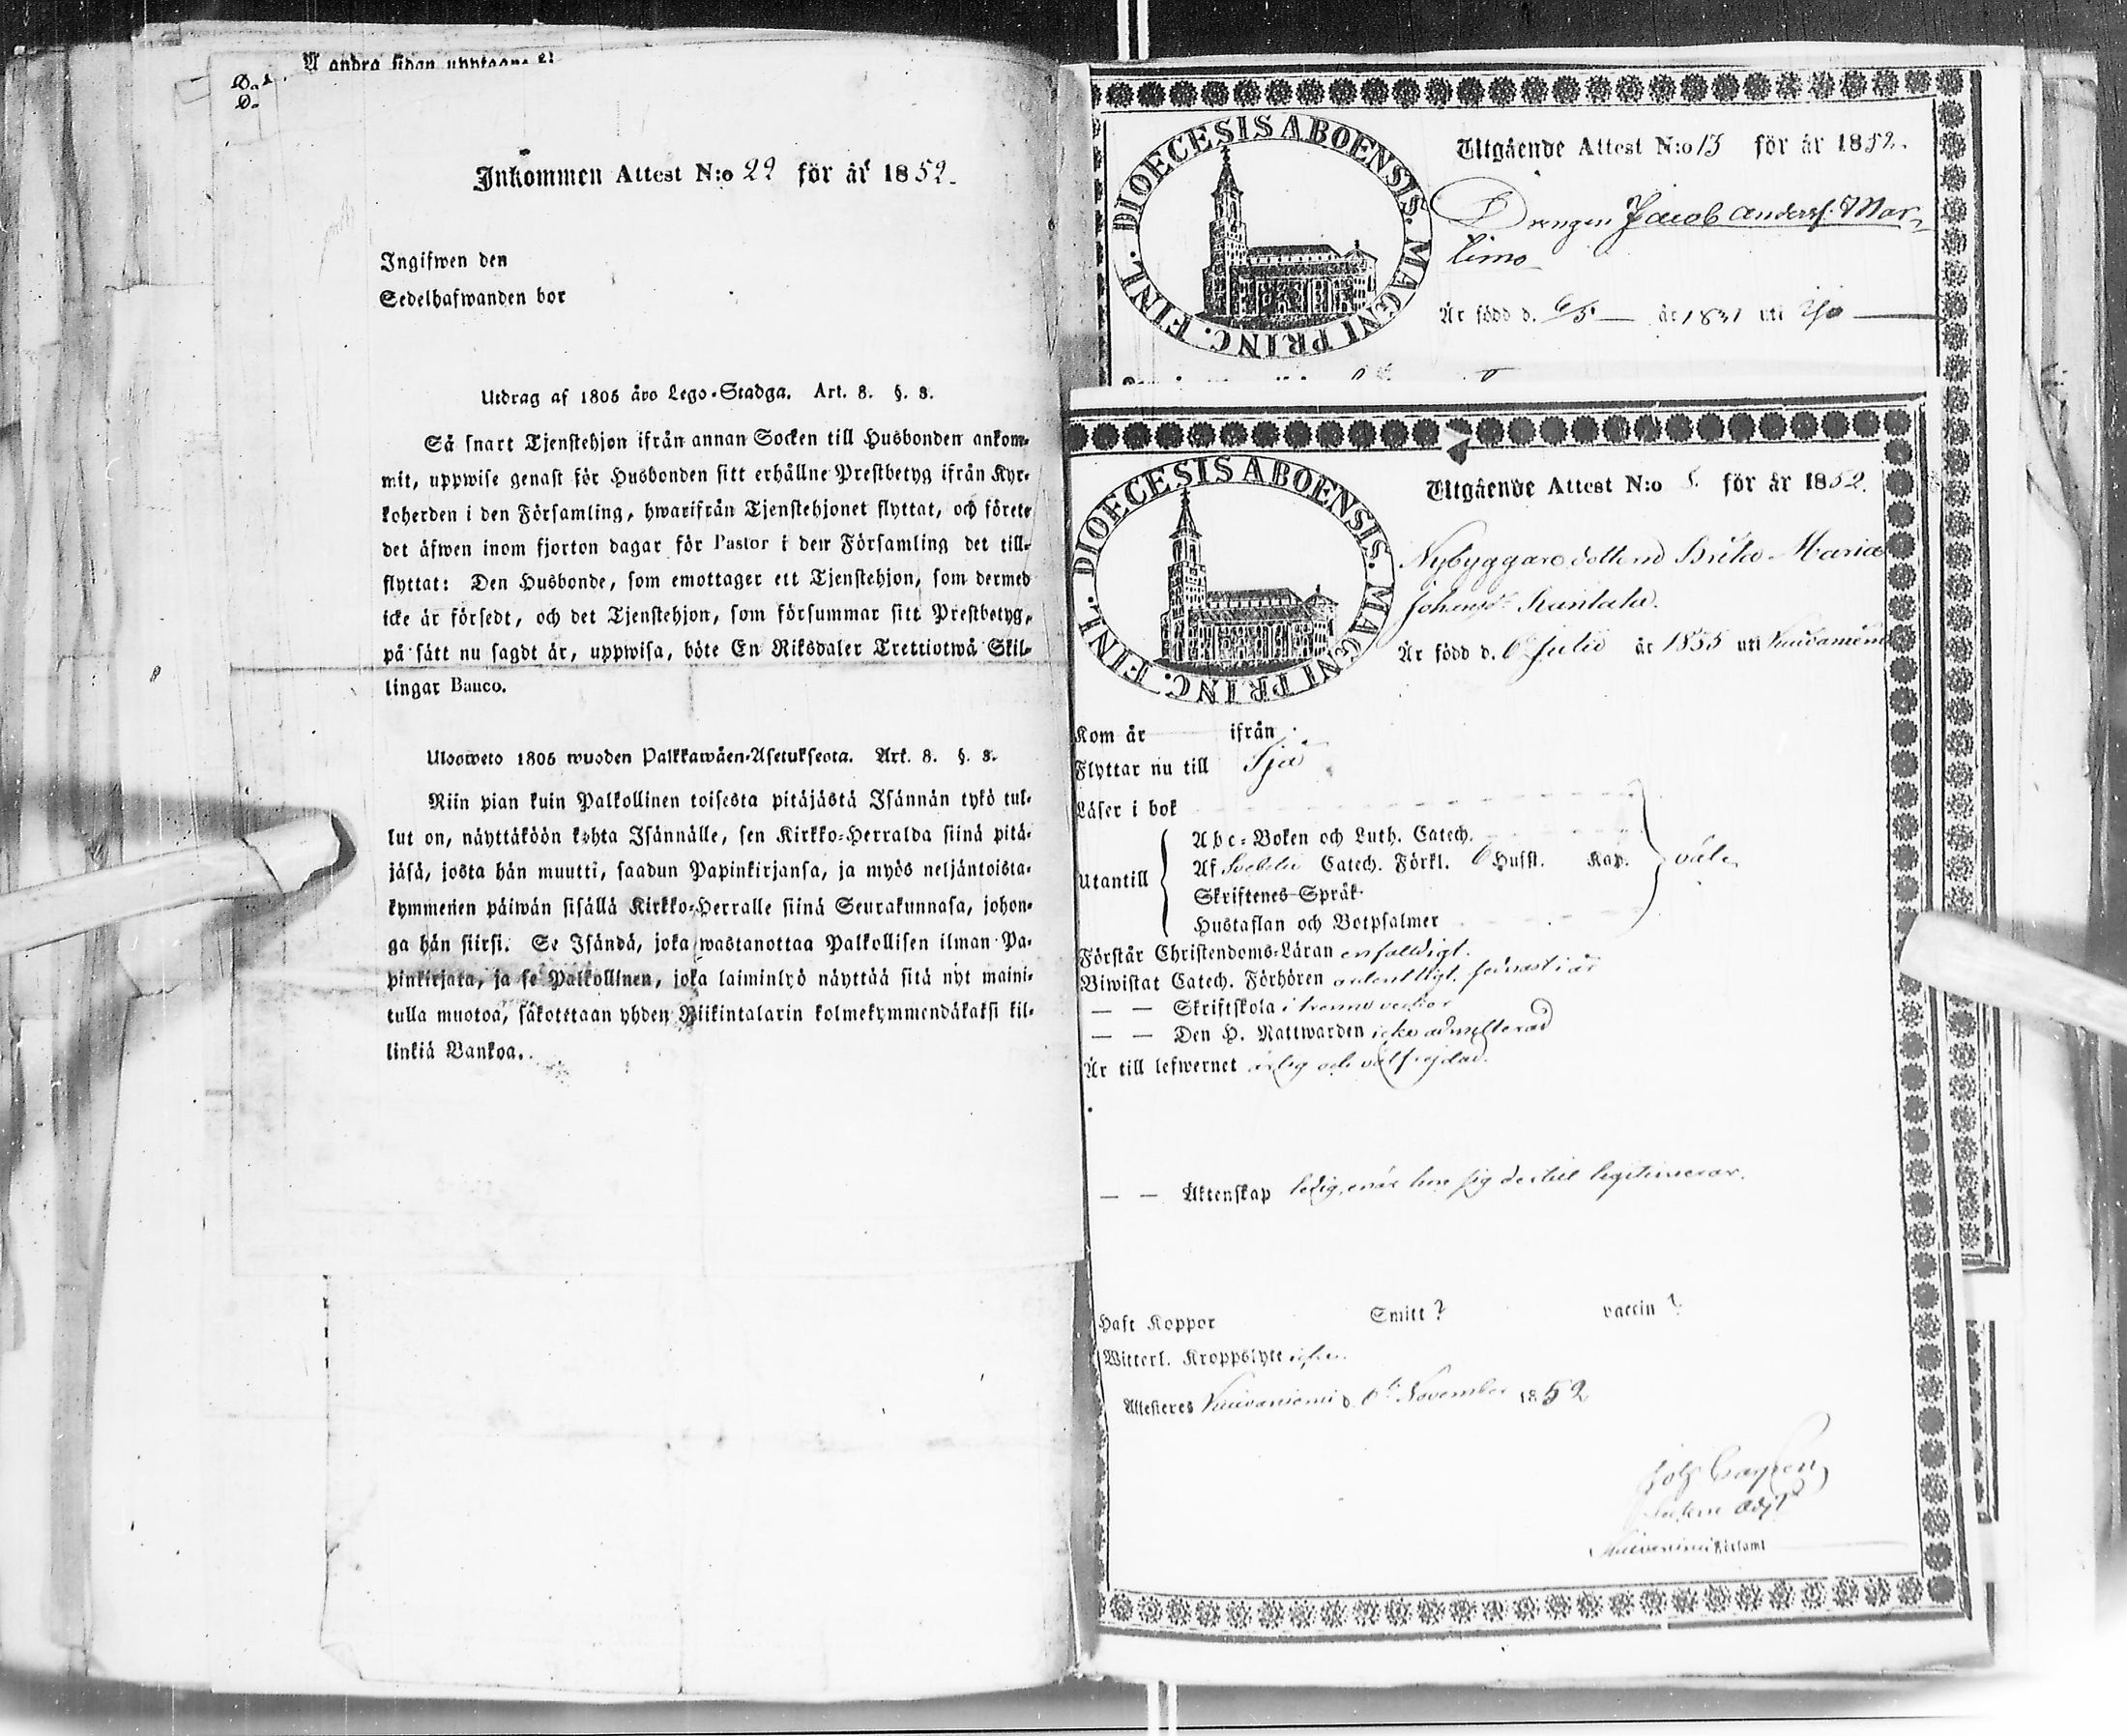 Inkommen Attest N:o 22 för år 1852.
Ingifwen den
Sedelhafwanden bor
Utdrag af 1805 års Lego-Stadga. Art. 8. §. 3.
Så snart Tjenstehjon ifrån annan Socken till Husbonden ankom-
mit, uppwise genast för Husbonden sitt erhållne Prestbetyg ifrån Kyr-
koherden i den Församling, hwarifrån Tjenstehjonet flyttat, och förete
det äfwen inom fjorton dagar för Pastor i den Församling det till-
flyttat: Den Husbonde, som emottager ett Tjenstehjon, som dermed
icke är försedt, och det Tjenstehjon, som försummar sitt Prestbetyg,
på sätt nu sagdt är, uppwisa, böte En Riksdaler Trettiotwå Skil-
lingar Banco.
Uloosweto 1805 wuoden Palkkawäen-Asetuksesta. Art. 8. §. 3.
Niin pian kuin Palkollinen toisesta pitäjästä Isännän tykö tul-
lut on, näyttäköön kohta Isännälle, sen Kirkko-Herralda siinä pitä-
jäsä, josta hän muutti, saadun Papinkirjansa, ja myös neljäntoista-
kymmenen päiwän sisällä Kirkko-Herralle siinä Seurakunnasa, johon-
ga hän siirsi. Se Isändä, joka wastanottaa Palkollisen ilman Pa-
pinkirjata, ja se Palkollinen, joka laiminlyö näyttää sitä nyt maini-
tulla muotoa, sakotetaan yhden Riikintalarin kolmekymmendäkaksi kil-
linkiä Bankoa.
DIOECESIS ABOENSIS. MAGNI PRINC. FINL.
Utgående Attest N:o 13 för år 1852.
Drengen Jacob Anderss. Mar-
timo
Är född d. 6/5 år 1831 uti Ijo
DIOECESIS ABOENSIS. MAGNI PRINC. FINL.
Utgående Attest N:o 5. för år 1852.
Nybyggare dottren Brita Maria
Johansdr Kantala.
Är född d. 6 Julii år 1835 uti Kuivaniemi
Kom år ifrån
Flyttar nu till Ijo
Läser i bok
Utantill
Abc-Boken och Luth. Catech.
Af Svebelii Catech. Förkl. 6 Hufst. Kap.
Skriftenes Språk
Hustaflan och Botpsalmer
väl
Förstår Christendoms-Läran enfaldigt.
Biwistat Catech. Förhören ordentligt, senast i år
— — Skriftskola i trenne veckor
— — Den H. Nattwarden icke admitterad
Är till lefwernet ärlig och välfrejdad.
— — Äktenskap ledig, enär hon sig dertill legitimerar.
Haft Koppor Smitt? vaccin?
Witterl. Kroppslyte icke.
Attesteres Kuivaniemi d. 6te November 1852
Kuivaniemi Pastorsamt